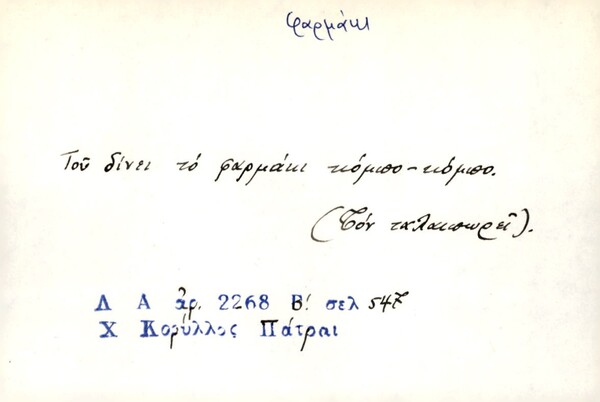 φαρμάκι
Τοῦ δίνει τό φαρμάκι κόμπο-κόμπο.
(Τόν ταλαιπωρεῖ).
Λ Α ἀρ. 2268 Β! σελ 547
Χ Κορύλλος Πάτραι